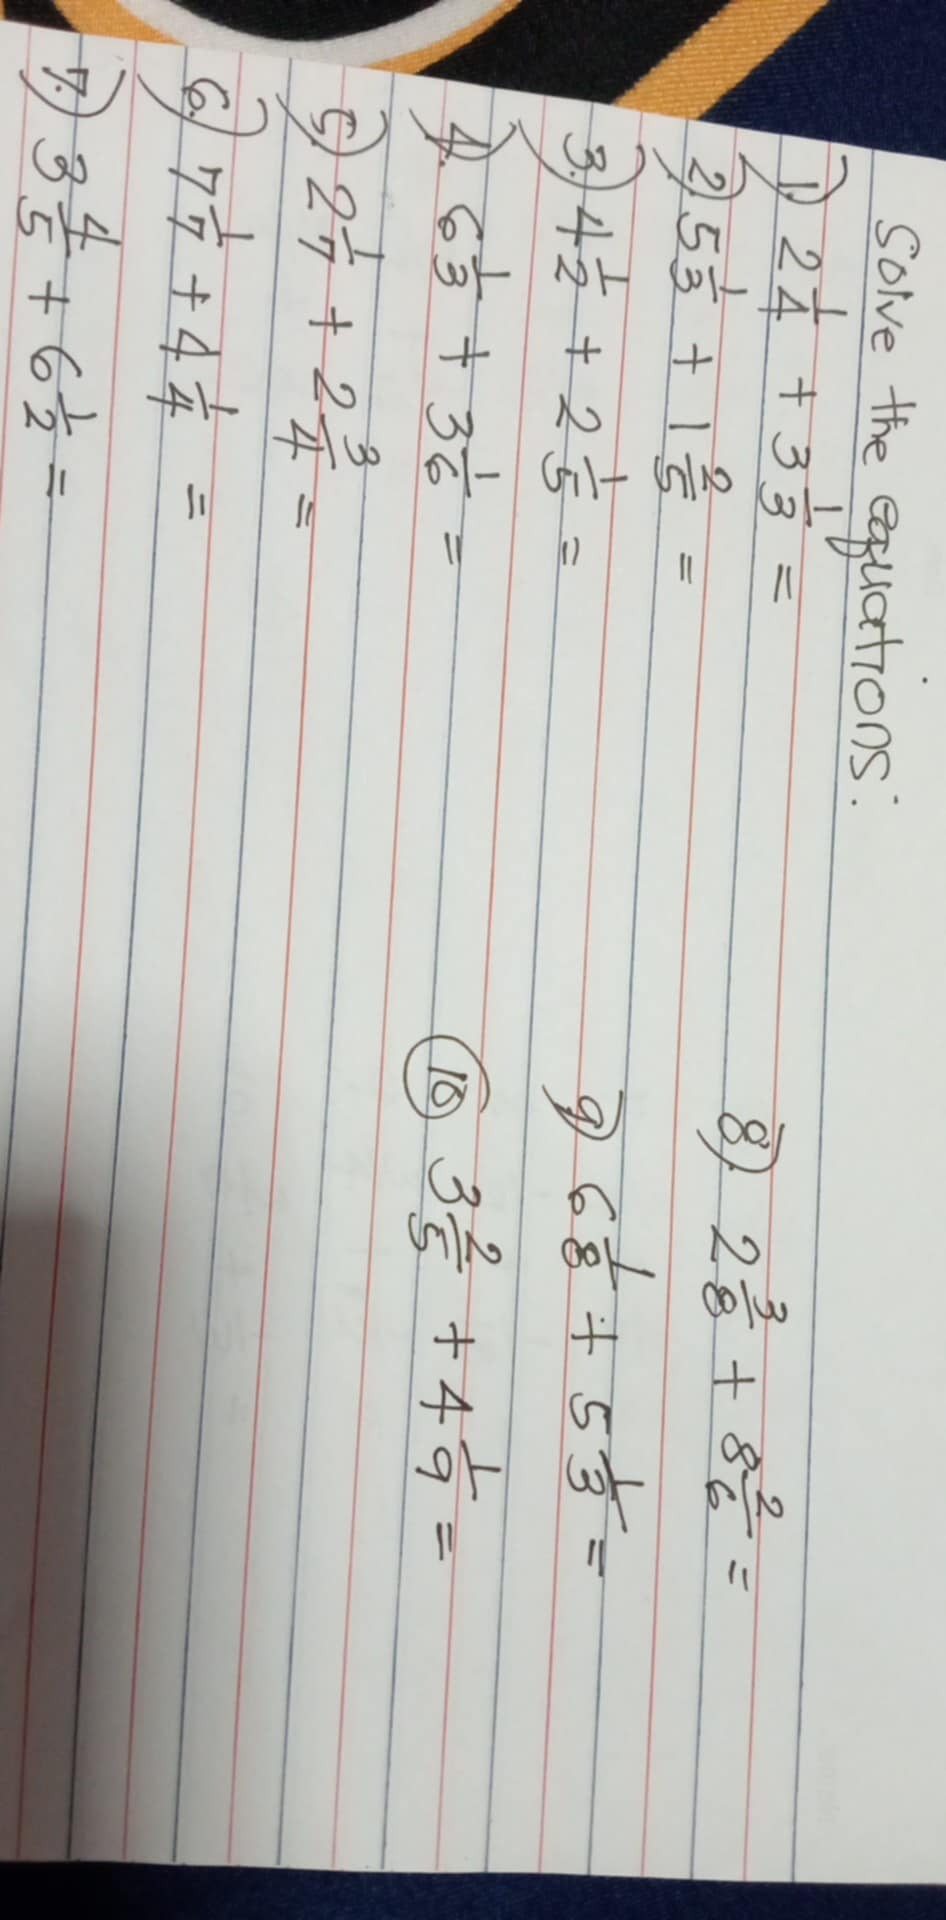 Solve the equations:
1.) 2 1/4 + 3 1/3 =
2) 5 1/3 + 1 2/5 =
3.) 4 1/2 + 2 1/5 =
4.) 6 1/3 + 3 1/6 =
5.) 2 1/7 + 2 3/4 =
6.) 7 1/7 + 4 1/4 =
7.) 3 4/5 + 6 1/2 =
8). 2 3/8 + 8 2/6 =
9) 6 1/8 + 5 1/3 =
10 3 2/5 + 4 1/9 =